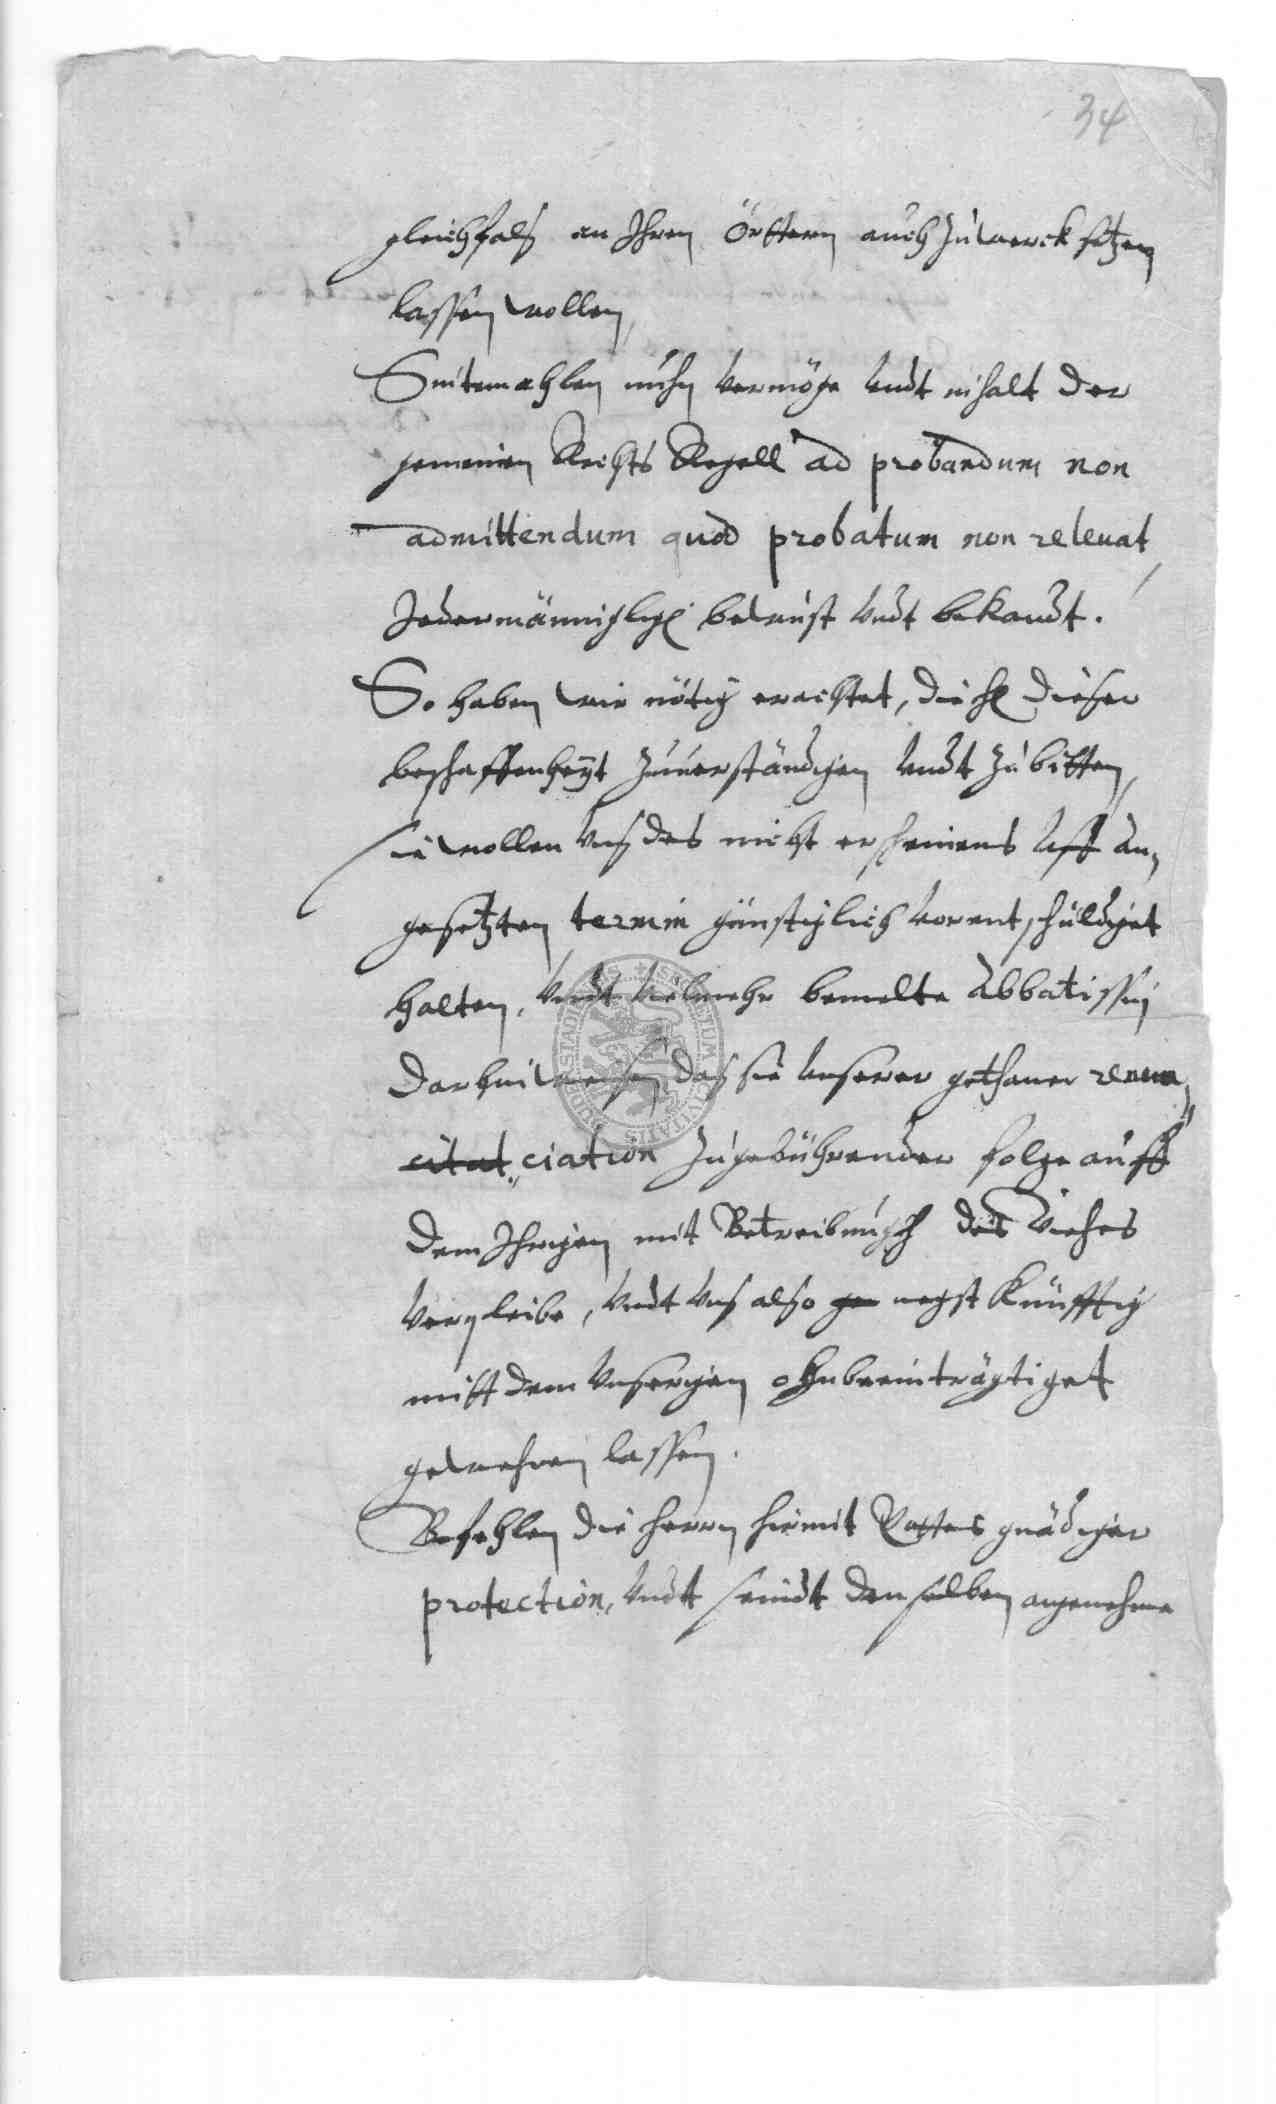 34
gleichfalß an Ihren örttern auch zuwerck setzen
lassen wollen,
Sintemahlen nuhn vermöge undt inhalt der
gemeinen Rechts Regell ad probandum non
admittendum quod probatum non releuat,
Jedermänniglich bewust undt bekandt.
So haben wir nötig erachtet, die h dieser
beschaffenheÿt zuuerständigen undt zu bitten,
sie wollen unß des nicht erscheinens uff an,
gesetzten termin günstiglich vor entschuldiget
halten, undt vielmehr bemelte Abbatissin
darhin weisen, daß sie unserer gethaner renun,
citat ciation zugebührender folge auff
dem Ihrigen mit Betreibungh des Viehes
verpleibe, undt unß also ge negst künfftig
mitt dem unserigen ohnbeeinträgtiget
gewehren lassen.
Befehlen die herrn hiemit Gottes gnädiger
protection, undt seindt denselben angenehme